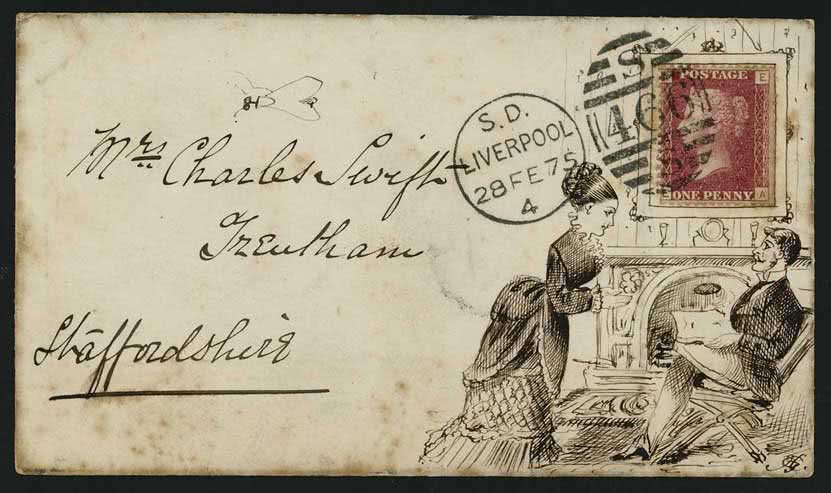 S
466
POSTAGE E
ONE PENNY A
S.D.
LIVERPOOL
28 FE 75
4
Mrs Charles Swift
Trentham
Staffordshire